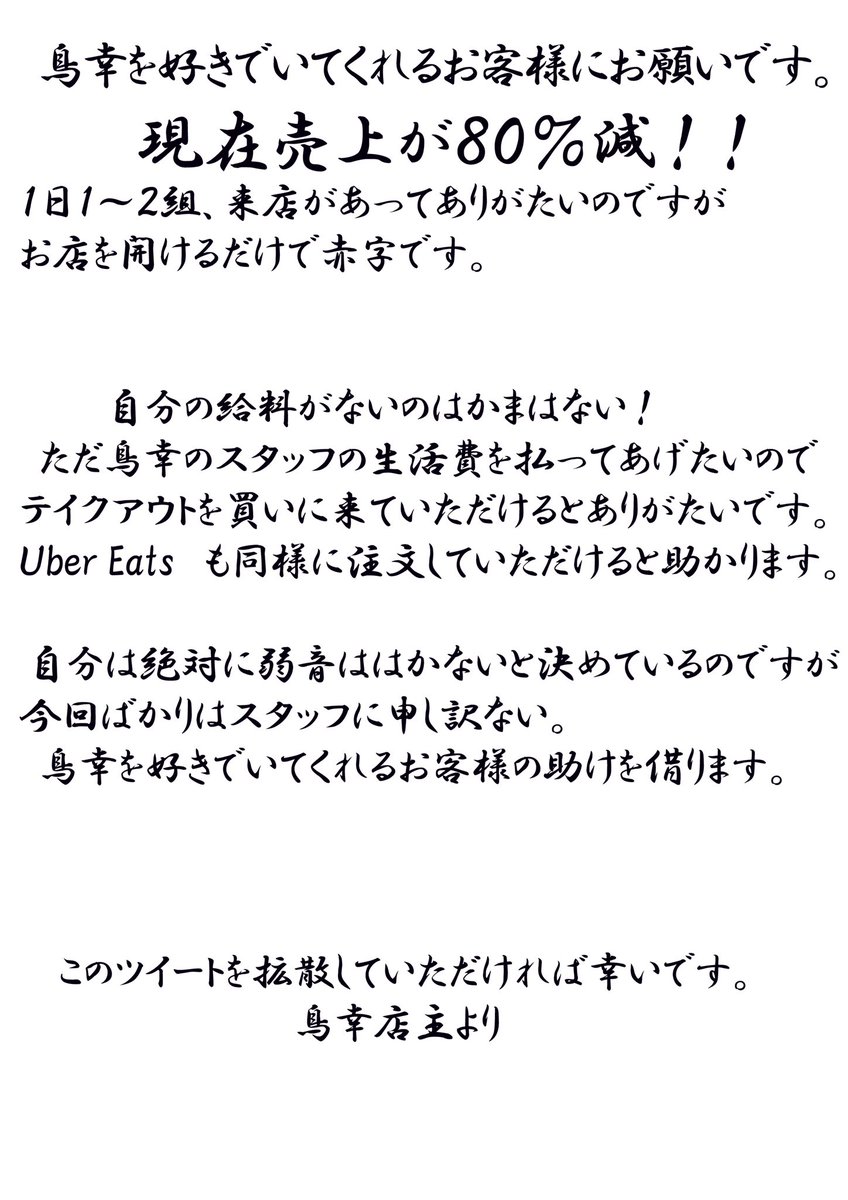 鳥幸を好きでいてくれるお客様にお願いです。
現在売上が80%減！！
1日1～2組、来店があってありがたいのですが
お店を開けるだけで赤字です。
自分の給料がないのはかまはない！
ただ鳥幸のスタッフの生活費を払ってあげたいので
テイクアウトを買いに来ていただけるとありがたいです。
Uber Eats も同様に注文していただけると助かります。
自分は絶対に弱音ははかないと決めているのですが
今回ばかりはスタッフに申し訳ない。
鳥幸を好きでいてくれるお客様の助けを借ります。
このツイートを拡散していただければ幸いです。
鳥幸店主より